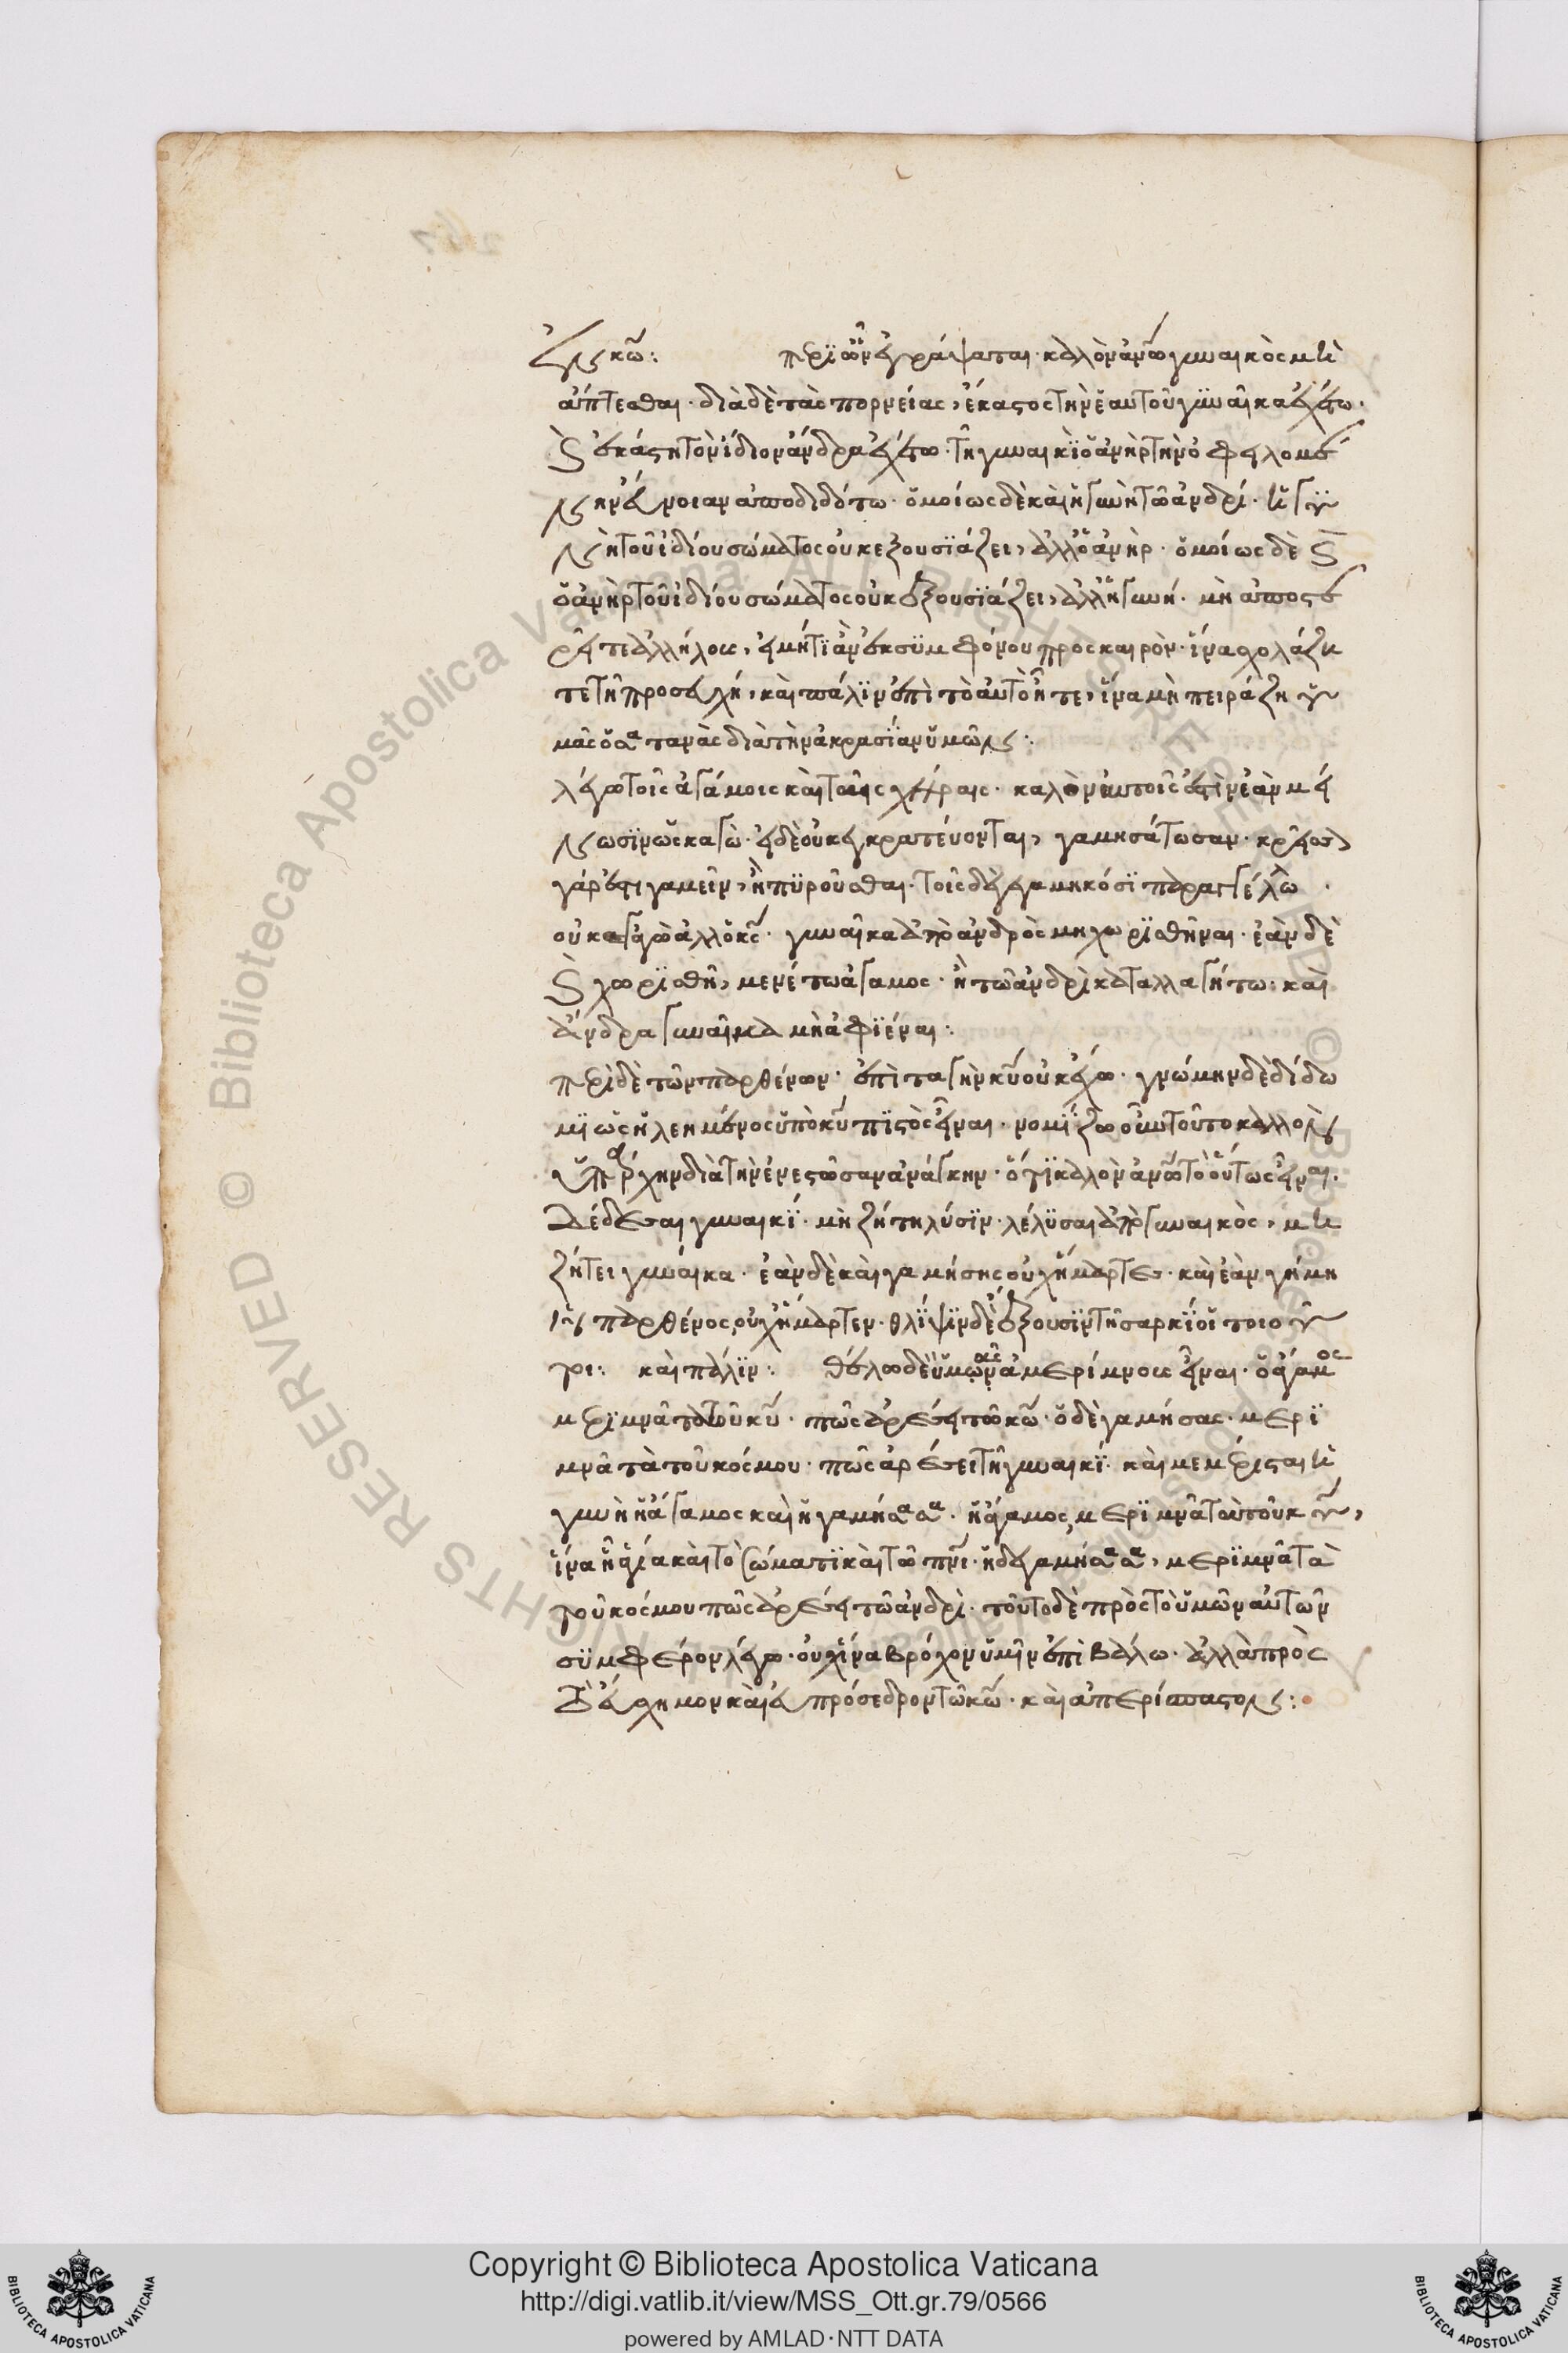 ἐν κῶ: περὶ ὧν ἐγράψαται· καλὸν ἀνῶ γυναικὸς μὴ
ἅπτεσθαι· διὰ δὲ τὰς πορνείας, ἕκαστος τὴν ἑαυτοῦ γυναῖκα ἐχέτω·
καὶ ἑκάστη τὸν ἴδιον ἄνδρα ἐχέτω· τῆ γυναικὶ ὁ ἀνὴρ τὴν ὀφειλομέ
νην εὔνοιαν ἀποδιδότω· ὁμοίως δὲ καὶ ἡ γυνὴ τῶ ἀνδρί· ἡ γυ
νὴ τοῦ ἰδίου σώματος οὐκ εξουσϊάζει, ἀλλ' ὁ ἀνὴρ· ὁμοίως δὲ καὶ
ὁ ἀνὴρ τοῦ ἰδίου σώματος οὐκ ἐξουσϊάζει, ἀλλ' ἡ γυνή· μὴ ἀποστε
ρεῖτε ἀλλήλους, εἰ μήτϊ ἂν ἐκ συμφόνου πρὸς καιρὸν· ἵνα σχολάζη
τε τῆ προσευχῆ, καὶ πάλϊν ἐπὶ τὸ αὐτὸ ἦτε, ἵνα μὴ πειράζη ὑ
μᾶς ὁ σατανὰς διὰ τὴν ἀκρασϊαν ὑμῶν:
λέγω τοῖς ἀγάμοις καὶ ταῖς χήραις· καλὸν αὐτοῖς ἐστὶν ἐὰν μεί
νωσϊν ὡς κἀγὼ· εἰ δὲ οὐκ εγκρατεύονται, γαμησάτωσαν· κρεῖσσον
γάρ ἐστι γαμεῖν, ἢ πϋροῦσθαι· τοῖς δὲ γεγαμηκόσϊ παραγγέλλω·
οὐκ ἐγὼ ἀλλ' ὁ κς· γυναῖκα ἀπὸ ἀνδρὸς μὴ χωρϊσθῆναι· ἐὰν δὲ
καὶ χωρϊσθῆ, μενέτω ἄγαμος· ἢ τῶ ἀνδρὶ καταλλαγήτω: καὶ
ἄνδρα γυναῖκα μὴ ἀφϊέναι:
περὶ δὲ τῶν παρθένων· ἐπιταγὴν κυ οὐκ ἔχω· γνώμην δὲ δίδω
μϊ ὡς ἠλεημένος ὑπὸ κυ πϊστὸς εἶναι· νομίζω οὖν τοῦτο καλλὸν
ὑπάρχην διὰ τὴν ἐνεστῶσαν ἀνάγκην· ὅτϊ καλὸν ἀνῶ τὸ οὕτως εἶναι·
δέδεσαι γυναικϊ· μὴ ζήτη λύσϊν· λέλϋσαι ἀπὸ γυναικὸς, μὴ
ζήτει γυναίκα· ἐὰν δὲ καὶ γαμήσης οὐχ ἥμαρτες· καὶ ἐὰν γήμη
ἡ παρθένος, οὐχ ἥμαρτεν· θλϊψϊν δὲ ἕξουσϊν τῆ σαρκϊ οἱ τοιοῦ
τοι: καὶ πάλϊν: θέλω δὲ ὑμᾶς ἀμερίμνους εἶναι· ὁ ἄγαμος
μερϊμνᾶ τὰ τοῦ κυ· πῶς ἀρέσει τῶ κῶ· ὁ δὲ γαμήσας· μερϊ
μνᾶ τὰ τοῦ κόσμου· πῶς ἀρέσει τῆ γυναικϊ· καὶ μεμέρισται ἡ
γυνὴ ἡ ἄγαμος καὶ ἡ γαμήσασα· ἡ ἄγαμος, μερϊμνᾶ τὰ τοῦ κυ,
ἵνα ἦ ἁγία καὶ τὸ σώματϊ καὶ τῶ πνι· ἡ δὲ γαμήσασα, μερϊμνᾶ τὰ
τοῦ κόσμου πῶς ἀρέσει τῶ ἀνδρὶ· τοῦτο δὲ πρὸς τὸ ὑμῶν αὐτῶν
σϋμφέρον λέγω· οὐχ ἵνα βρόχον ὑμῖν ἐπιβάλω· ἀλλὰ πρὸς
τὸ εὔσχημον καὶ εὐπρόσεδρον τῶ κῶ· καὶ ἀπερίσπαστον:
Copyright © Biblioteca Apostolica Vaticana
http://digi.vatlib.it/view/MSS_Ott.gr.79/0566
powered by AMLAD·NTT DATA